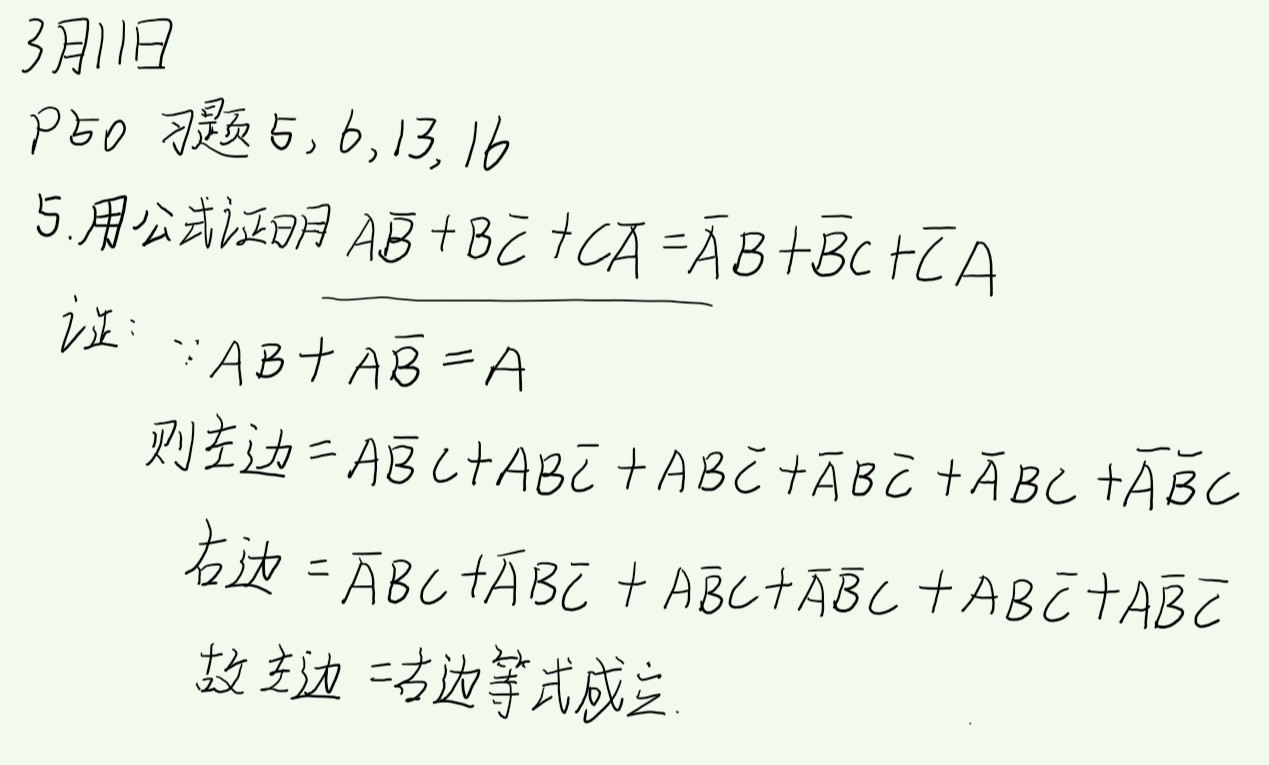 3月11日
P50 习题 5, 6, 13, 16
5.用公式证明 AB̅ + BC̅ + CA̅ = A̅B + B̅C + C̅A
证: ∵ AB + AB̅ = A
则左边 = AB̅C + ABC̅ + ABC̅ + A̅BC̅ + A̅BC + A̅B̅C
右边 = A̅BC + A̅BC̅ + AB̅C + A̅B̅C + ABC̅ + AB̅C̅
故左边 = 右边等式成立.